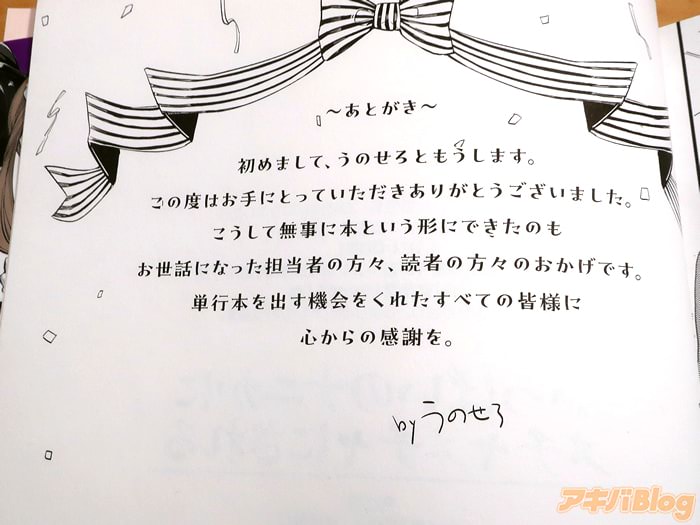 ~あとがき~
初めまして、うのせろともうします。
この度はお手にとっていただきありがとうございました。
こうして無事に本という形にできたのも
お世話になった担当者の方々、読者の方々のおかげです。
単行本を出す機会をくれたすべての皆様に
心からの感謝を。
by うのせろ
アキバBlog